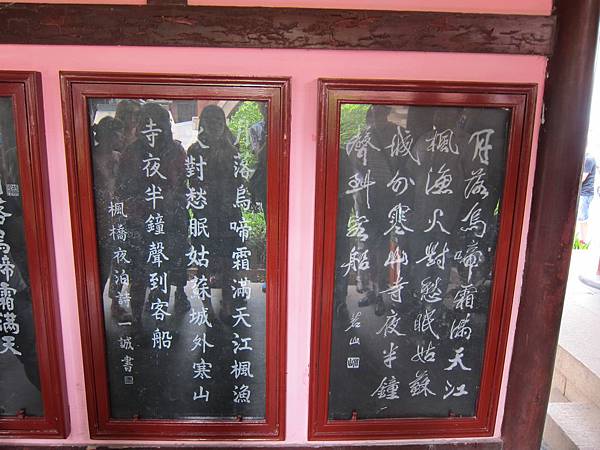 月落烏啼霜滿天江
楓漁火對愁眠姑蘇
城外寒山寺夜半鐘
聲到客船
茗山
月落烏啼霜滿天江楓漁
火對愁眠姑蘇城外寒山
寺夜半鐘聲到客船
楓橋夜泊詩 一誠書
落烏啼霜滿天